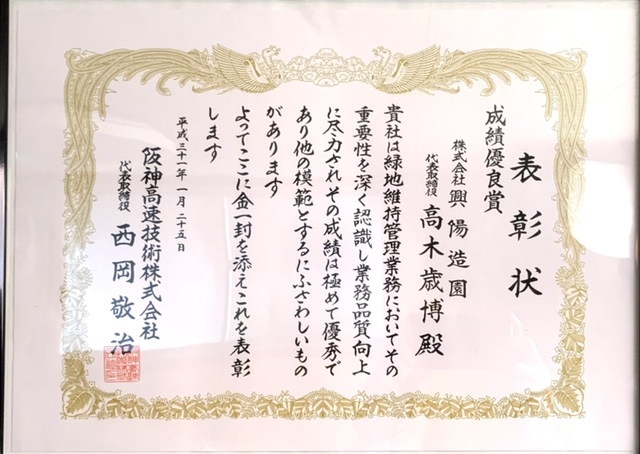 表彰状
成績優良賞
株式会社興陽造園
代表取締役 高木歳博殿
貴社は緑地維持管理業務においてその
重要性を深く認識し業務品質向上
に尽力されその成績は極めて優秀で
あり他の模範とするにふさわしいもの
があります
よってここに金一封を添えこれを表彰
します
平成三十一年一月二十五日
阪神高速技術株式会社
代表取締役 西岡敬治